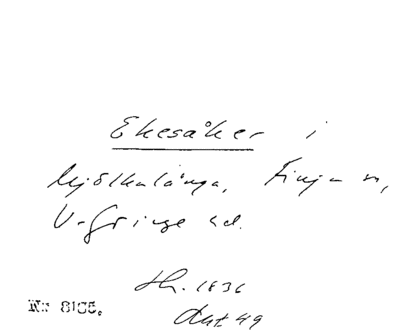 Ekesåker i
Mjölkalånga, Finja sn,
V. Göinge hd.
Hr. 1836
Akt 49
Nr 8185.